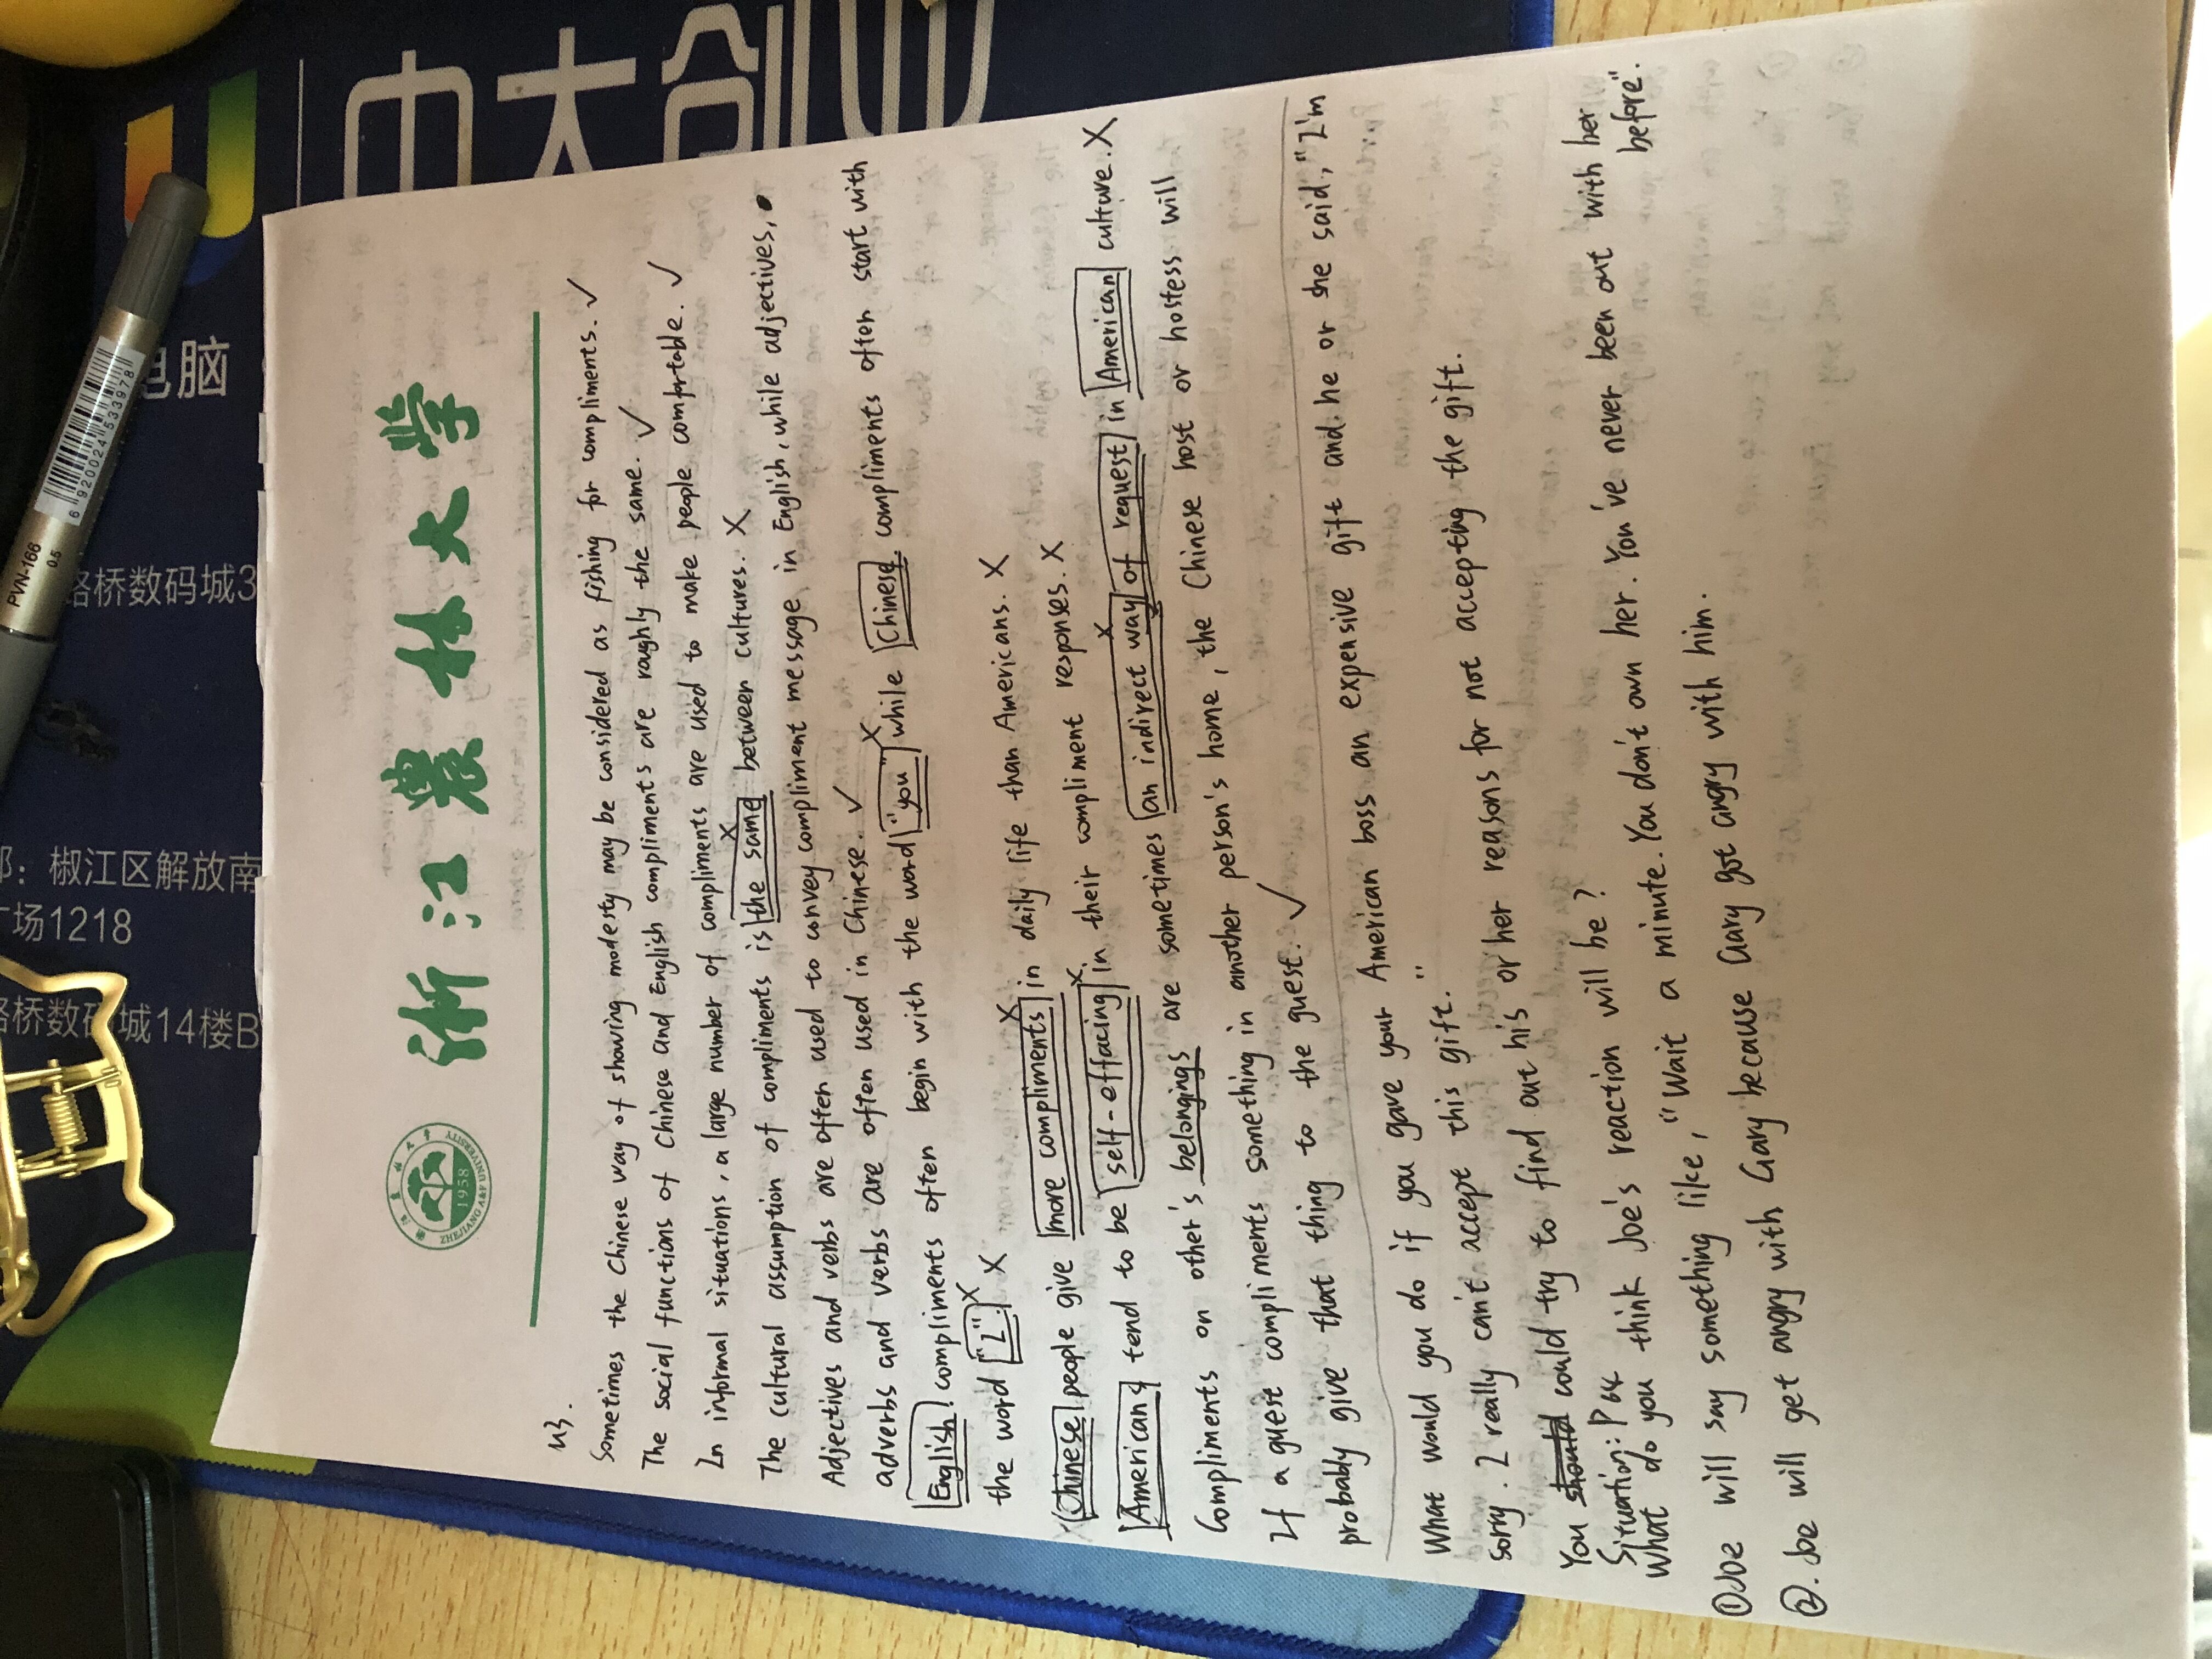 浙江農林大学
ZHEJIANG A&F UNIVERSITY
1958
U3.
Sometimes the Chinese way of showing modesty may be considered as fishing for compliments. ✓
The social functions of Chinese and English compliments are roughly the same. ✓
In informal situations, a large number of compliments are used to make people comfortable. ✓
The cultural assumption of compliments is the same between cultures. X
Adjectives and verbs are often used to convey compliment message in English, while adjectives,
adverbs and verbs are often used in Chinese. ✓
English compliments often begin with the word "you" while Chinese compliments often start with
the word "I". X
Chinese people give more compliments in daily life than Americans. X
American tend to be self-effacing in their compliment responses. X
Compliments on other's belongings are sometimes an indirect way of request in American culture. X
If a guest compliments something in another person's home, the Chinese host or hostess will
probably give that thing to the guest. ✓
What would you do if you gave your American boss an expensive gift and he or she said, "I'm
sorry. I really can't accept this gift."
You should could try to find out his or her reasons for not accepting the gift.
Situation: P64
What do you think Joe's reaction will be?
①Joe will say something like, "Wait a minute. You don't own her. You've never been out with her
before".
②. Joe will get angry with Gary because Gary got angry with him.
中大创业
电脑
路桥数码城3
部：椒江区解放南
广场1218
路桥数码城14楼B
PVN-166
0.5
6 920024 533978